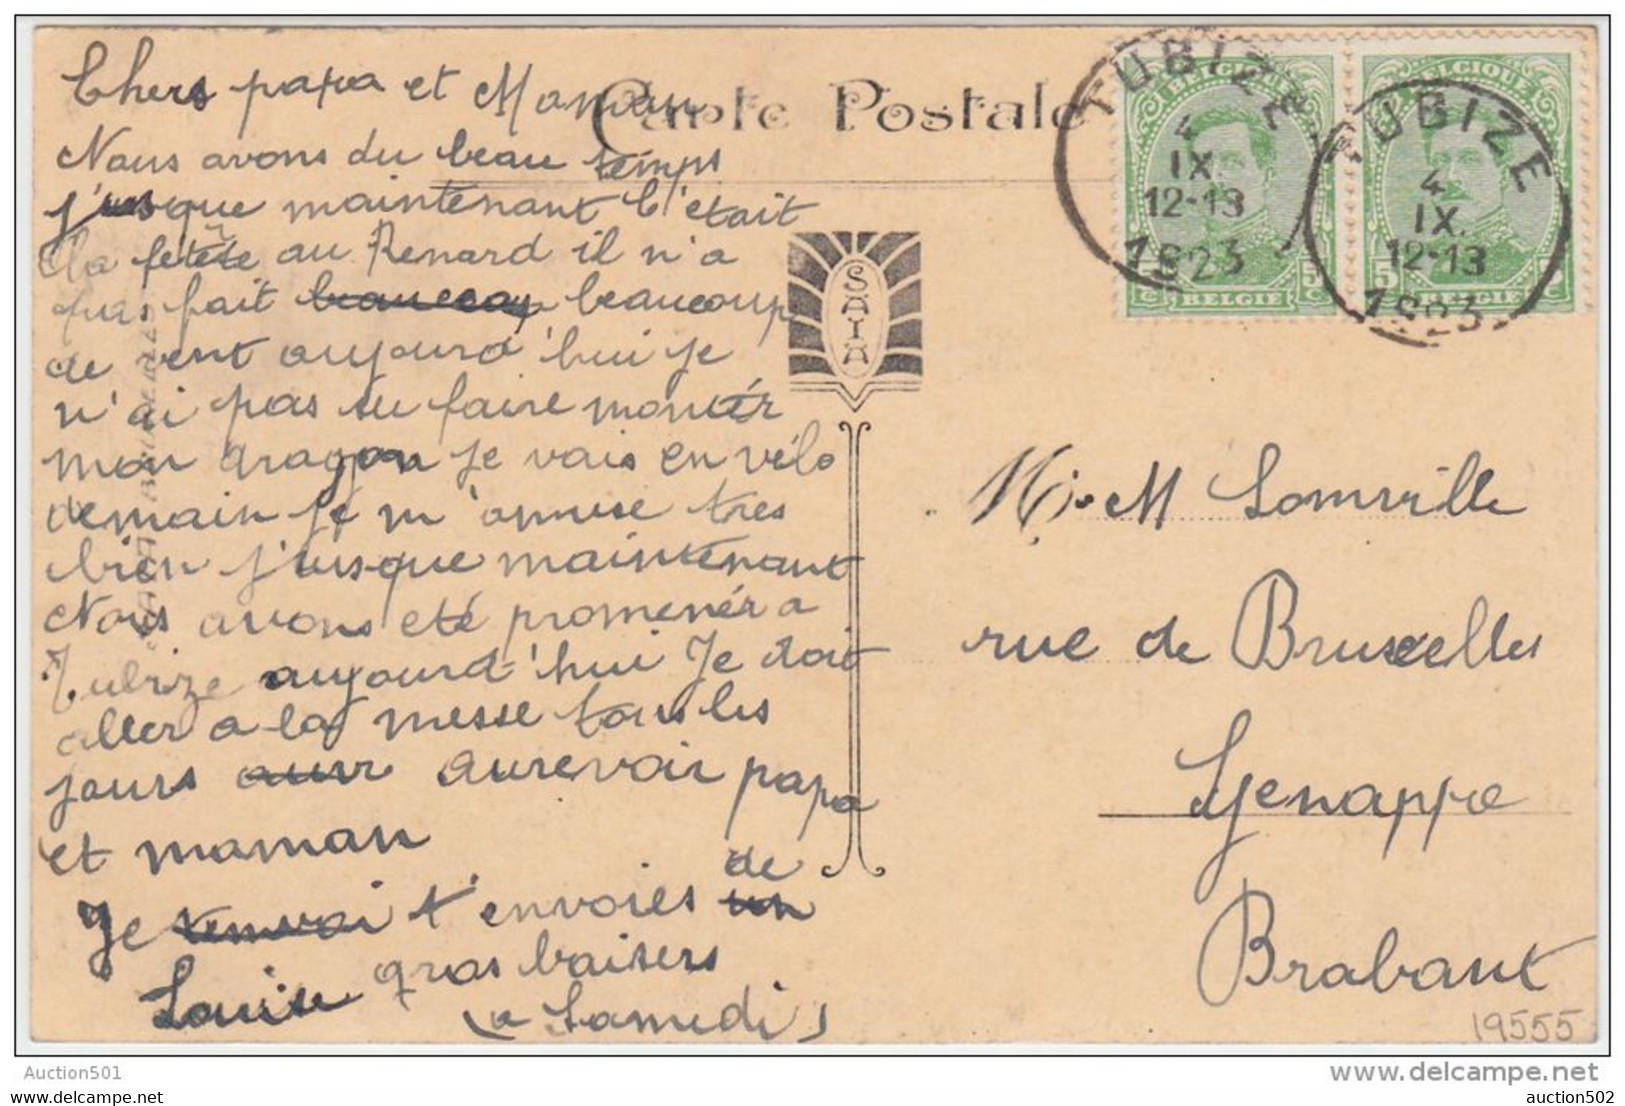 Chers papa et Maman
Nous avons du beau temps
j'usque maintenant c'était
la fête au Renard il n'a
pas fait beaucoup beaucoup
de vent aujourd'hui je
n'ai pas su faire monter
mon dragon je vais en vélo
demain je m'amuse tres
bien j'usque maintenant
Nous avons eté promenér a
Tubize aujourd'hui Je doit
aller a la messe tous les
jours aurevoir papa
et maman
Je t'envoies de un
gros baisers
Louise (a Samedi)
Carte Postale
SAIA
TUBIZE
4
IX.
12-13
1923
TUBIZE
4
IX.
12-13
1923
BELGIQUE
5 C BELGIE 5 C
BELGIQUE
5 C BELGIE 5 C
M. M Somville
rue de Bruxelles
Genappe
Brabant
19555
Auction501
www.delcampe.net
auction501
auction502